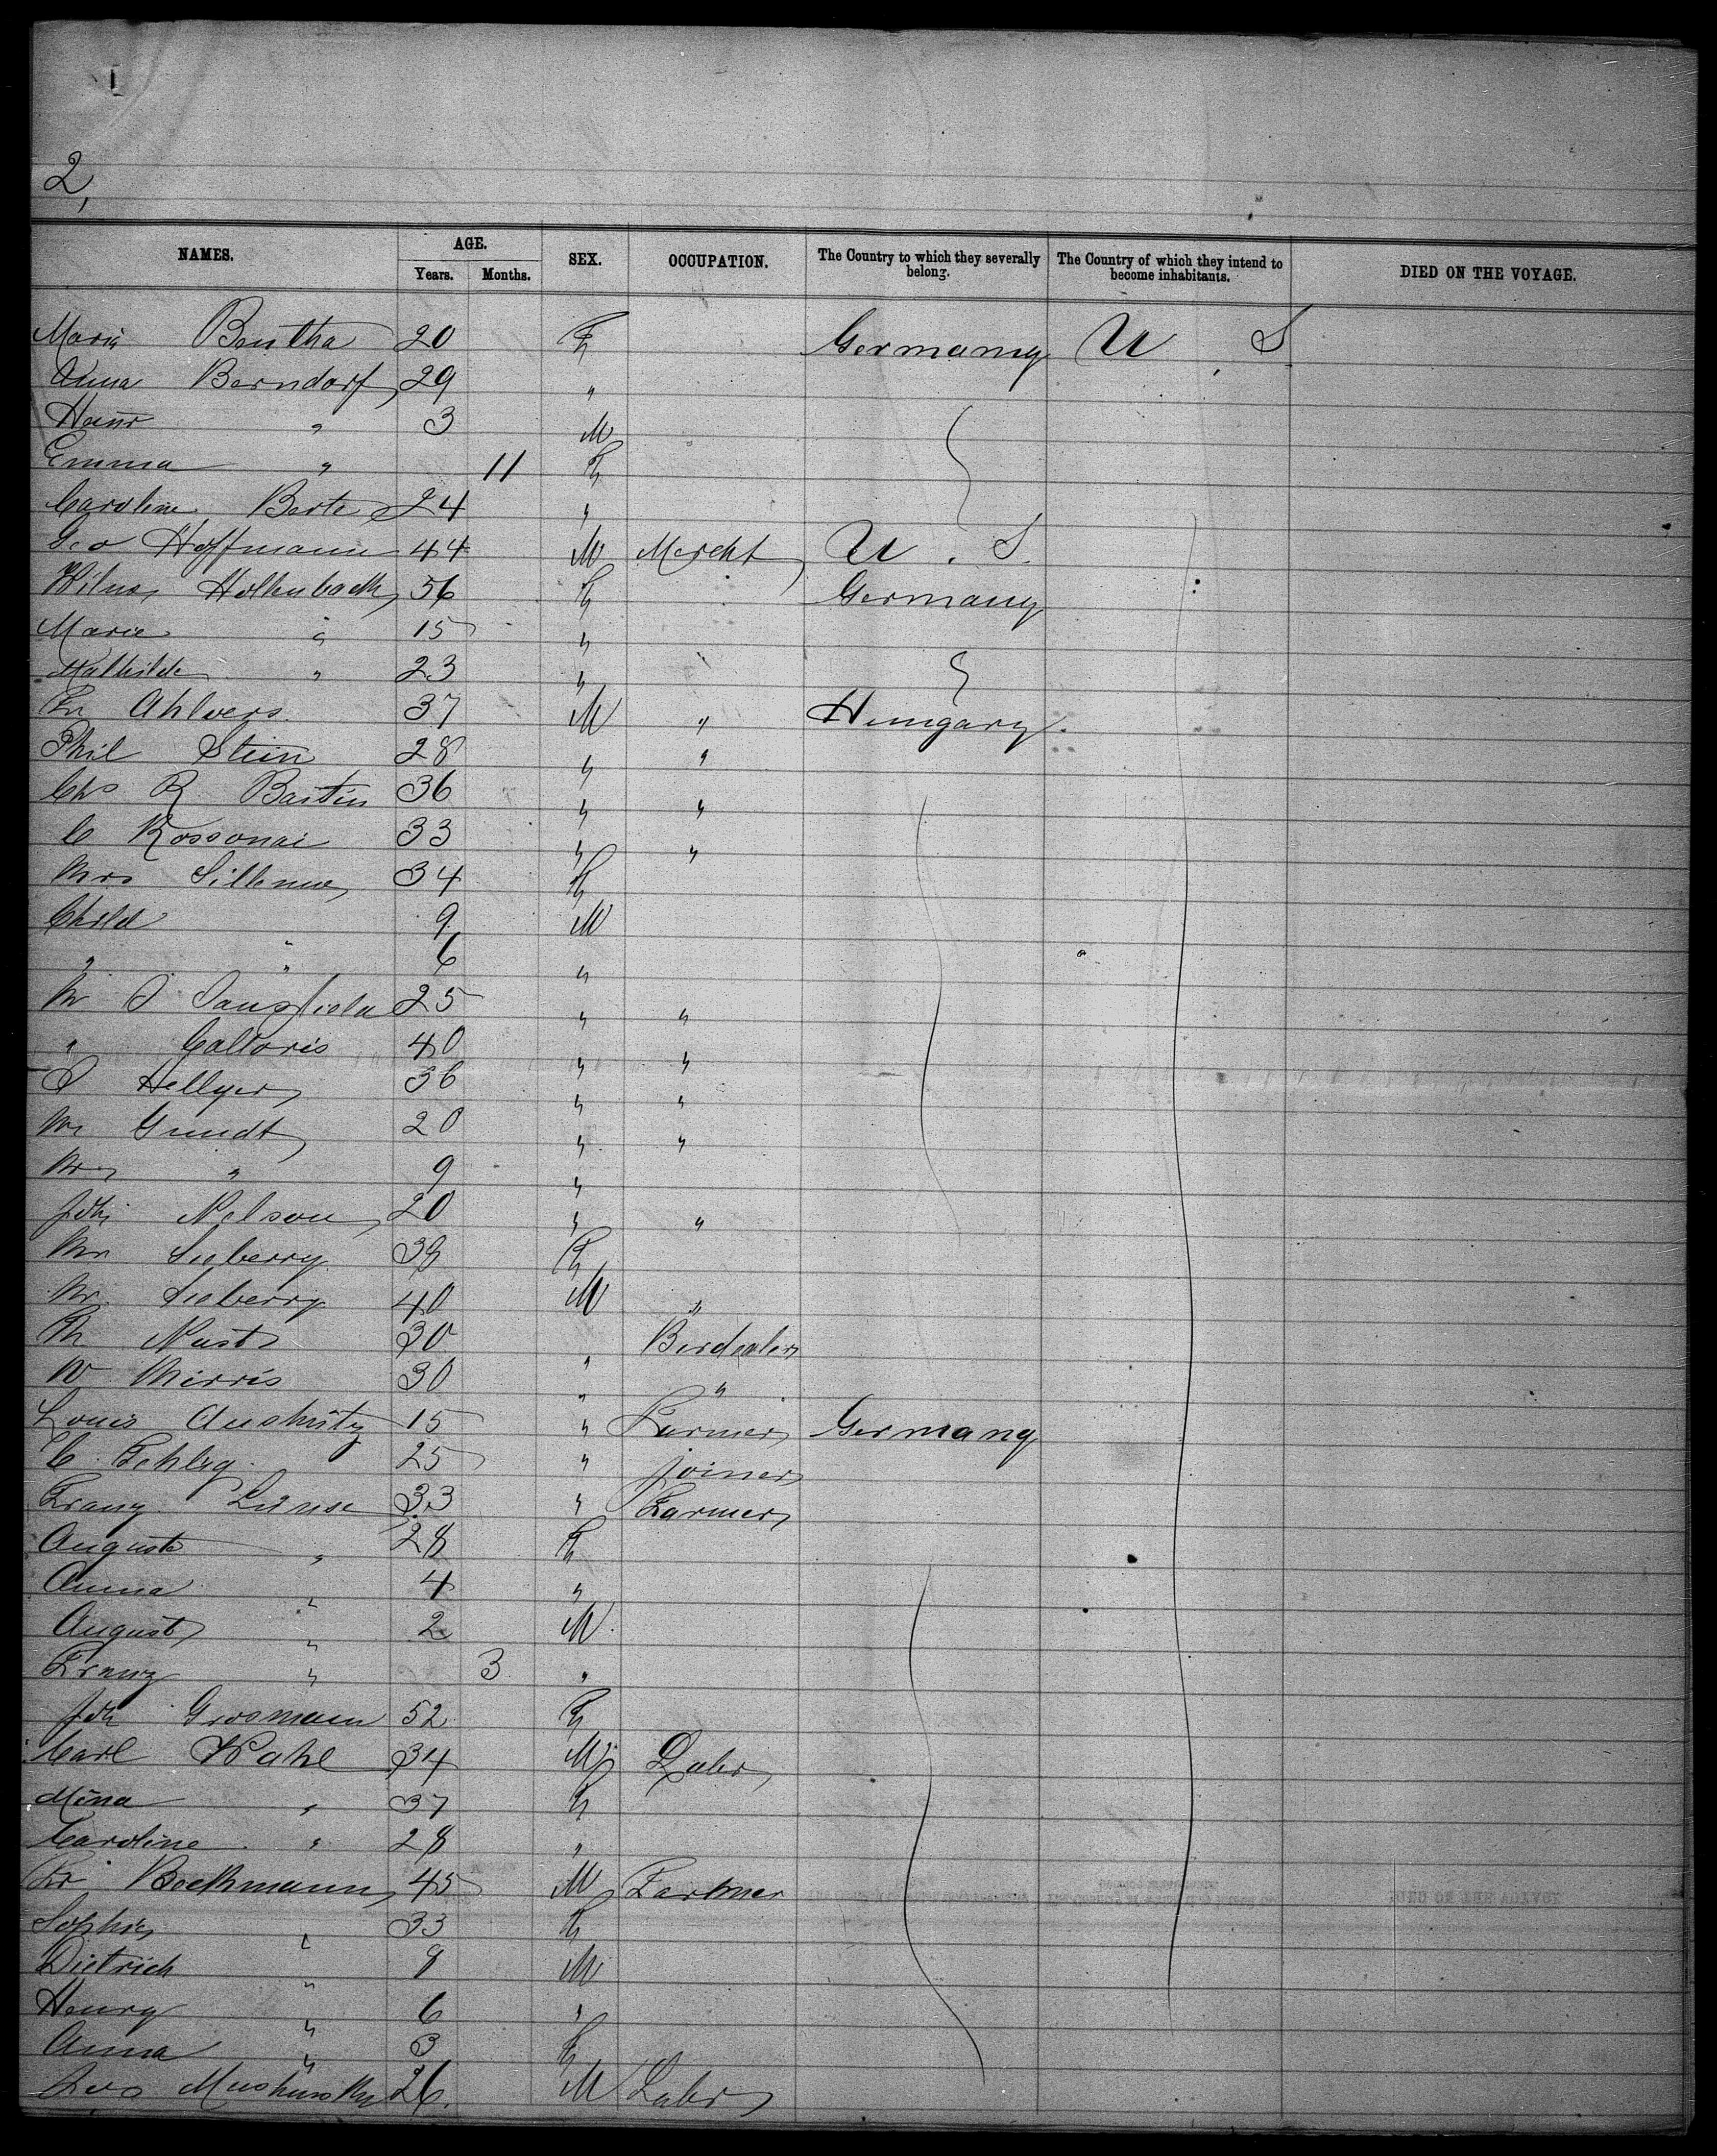 2,
NAMES. AGE. Years. Months. SEX. OCCUPATION. The Country to which they severally belong. The Country of which they intend to become inhabitants. DIED ON THE VOYAGE.
Maria Bentha 20 F Germany U S
Anna Berndorf 29 "
Hans " 3 M
Emma " 11 F
Caroline Berte 24 "
Geo Hoffmann 44 M Mercht U. S.
Hollenbach 56 F Germany
Marie " 15 "
Mathilde " 23 "
Fr Ahlvers 37 M " Hungary
Phil Stein 28 " "
Chs R Bastin 36 " "
C Rossonai 33 " "
Mrs 34 F
Child 9 M
" " 6 "
Mr S 25 " "
" Galloris 40 " "
S Hellyer 36 " "
Mr Grundt 20 " "
" 9 "
Joh Nelson 20 " "
Mrs Sieberry 38 F
Mr. Sieberry 40 M "
Th Nust 30 " Birdealer
W Mirris 30 " "
Louis 15 " Farmer Germany
C. 25 " Joiner
Franz 33 " Farmer
Auguste " 28 F
Anna " 4 "
August " 2 M
Franz " 3 "
Joh Grosmann 52 F
Carl Wahl 34 M Labr
Mina " 37 F
Caroline " 28 "
Fr Boekmann 45 M Farmer
Sophie " 33 F
Dietrich " 9 M
Henry " 6 "
Anna " 3 F
26. M Labr